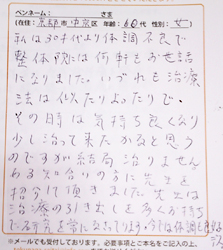 ペンネーム: さま
(在住:京都市中京区 年齢:60代 性別:女)
私は30才代より体調不良で
整体院には何軒もお世話
になりました。いずれも治療
法は似たりよったりで、
その時は気持ち良くなり
少し治って来たかなと思う
のですが結局治りません
ある知り合いの方に先生を
紹介して頂きました。先生は
治療の引き出しを多く
研究を常になさっています。
※メールでも受付しております。必要事項とご本名をご記入の上、